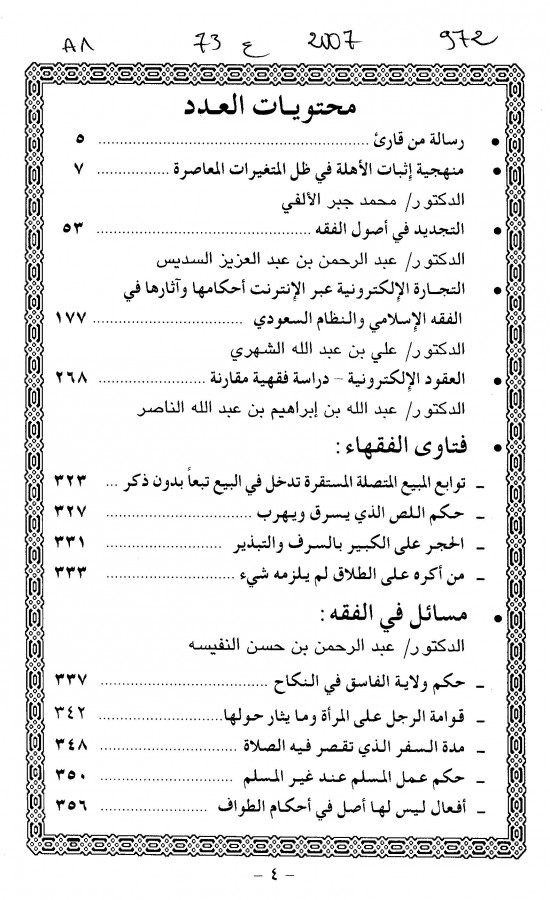 972 2007 ع 73 ٨٨
محتويات العدد
• رسالة من قارئ ........ ٥
• منهجية إثبات الأهلة في ظل المتغيرات المعاصرة ........ ٧
الدكتور/ محمد جبر الألفي
• التجديد في أصول الفقه ........ ٥٣
الدكتور/ عبد الرحمن بن عبد العزيز السديس
• التجارة الإلكترونية عبر الإنترنت أحكامها وآثارها في
الفقه الإسلامي والنظام السعودي ........ ١٧٧
الدكتور/ علي بن عبد الله الشهري
• العقود الإلكترونية – دراسة فقهية مقارنة ........ ٢٦٨
الدكتور/ عبد الله بن إبراهيم بن عبد الله الناصر
• فتاوى الفقهاء :
ـ توابع المبيع المتصلة المستقرة تدخل في البيع تبعاً بدون ذكر ... ٣٢٣
ـ حكم اللص الذي يسرق ويهرب ........ ٣٢٧
ـ الحجر على الكبير بالسرف والتبذير ........ ٣٣١
ـ من أكره على الطلاق لم يلزمه شيء ........ ٣٣٣
• مسائل في الفقه :
الدكتور/ عبد الرحمن بن حسن النفيسه
ـ حكم ولاية الفاسق في النكاح ........ ٣٣٧
ـ قوامة الرجل على المرأة وما يثار حولها ........ ٣٤٢
ـ مدة السفر الذي تقصر فيه الصلاة ........ ٣٤٨
ـ حكم عمل المسلم عند غير المسلم ........ ٣٥٠
ـ أفعال ليس لها أصل في أحكام الطواف ........ ٣٥٦
– ٤ –